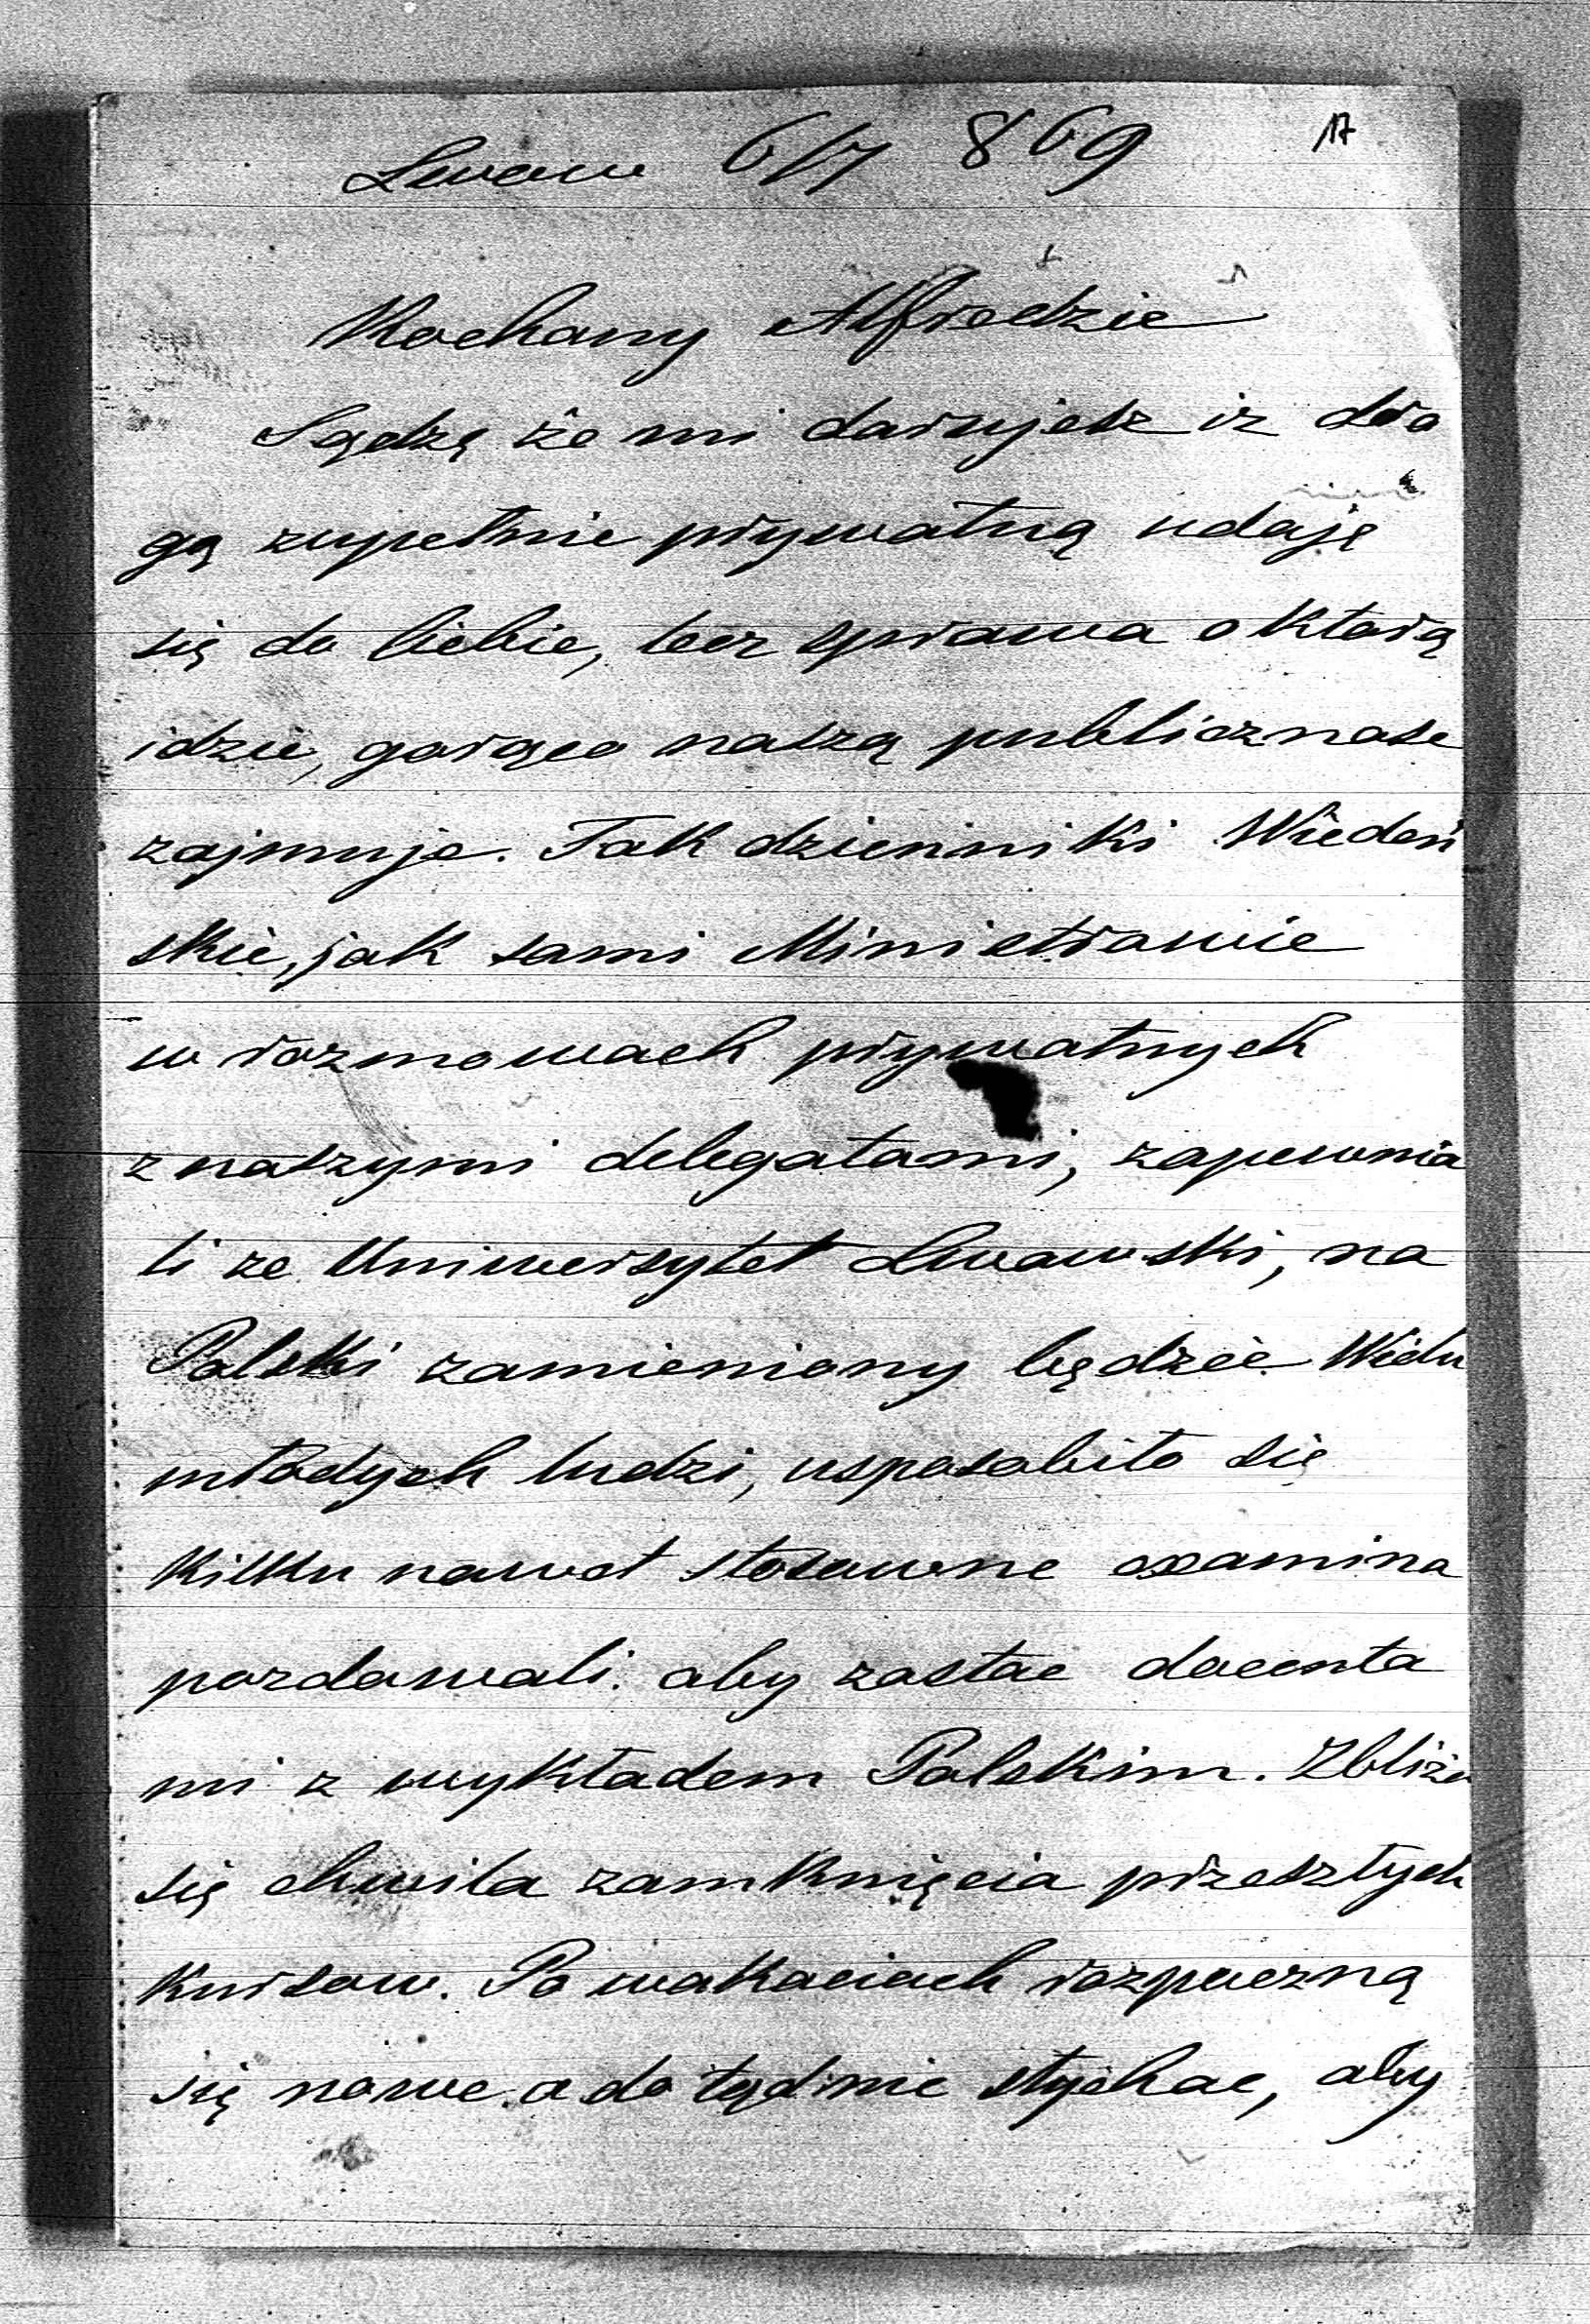 17
Lwow 6/7 869
Kochany Alfredzie
Sądzę że mi darujesz iz dro
gą zupełnie prywatną udaję
się do Ciebie, lecz sprawa o Którą
idzie, gorąco naszą publicznosc
zajmuje. Tak dzienniki Wiedeń
skie, jak sami Ministrowie
w rozmowach prywatnych
z naszymi delegatami, zapewnia
li ze Uniwersytet Lwowski, na
Polski zamieniony będzie. Wielu
młodych ludzi, usposobiło się
Kilku nawet stosowne examina
pozdawali. aby zostac docenta
mi z wykładem Polskim. Zbliża
się chwila zamknięcia przeszłych
Kursow. Po wakaciach rozpoczną
się nowe. a do tąd nie słychac, aby